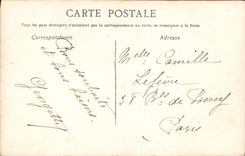 CARTE POSTALE
Tous les pays étrangers n'acceptent pas la correspondance au recto, se renseigner à la Poste
Correspondance
Adresse
Bons souhaits
et bons baisers
Georgette
Melle Camille
Lefèvre
37 Bd de Bercy
Paris